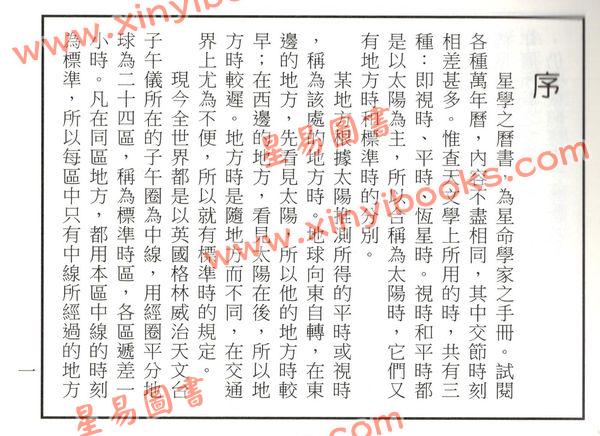 序
星學之曆書，為星命學家之手冊。試閱
各種萬年曆，內容不盡相同，其中交節時刻
相差甚多。惟查天文學上所用的時，共有三
種：即視時、平時、恆星時。視時和平時都
是以太陽為主，所以合稱為太陽時，它們又
有地方時和標準時的分別。
某地方根據太陽推測所得的平時或視時
，稱為該處的地方時。地球向東自轉，在東
邊的地方，先看見太陽，所以他的地方時較
早；在西邊的地方，看見太陽在後，所以地
方時較遲。地方時是隨地方而不同，在交通
界上尤為不便，所以就有標準時的規定。
現今全世界都是以英國格林威治天文台
子午儀所在的子午圈為中線，用經圈平分地
球為二十四區，稱為標準時區，各區遞差一
小時。凡在同區地方，都用本區中線的時刻
為標準，所以每區中只有中線所經過的地方
一
www.xinyibooks.com
星易圖書
www.xinyibooks.com
星易圖書
www.xinyibooks.com
星易圖書